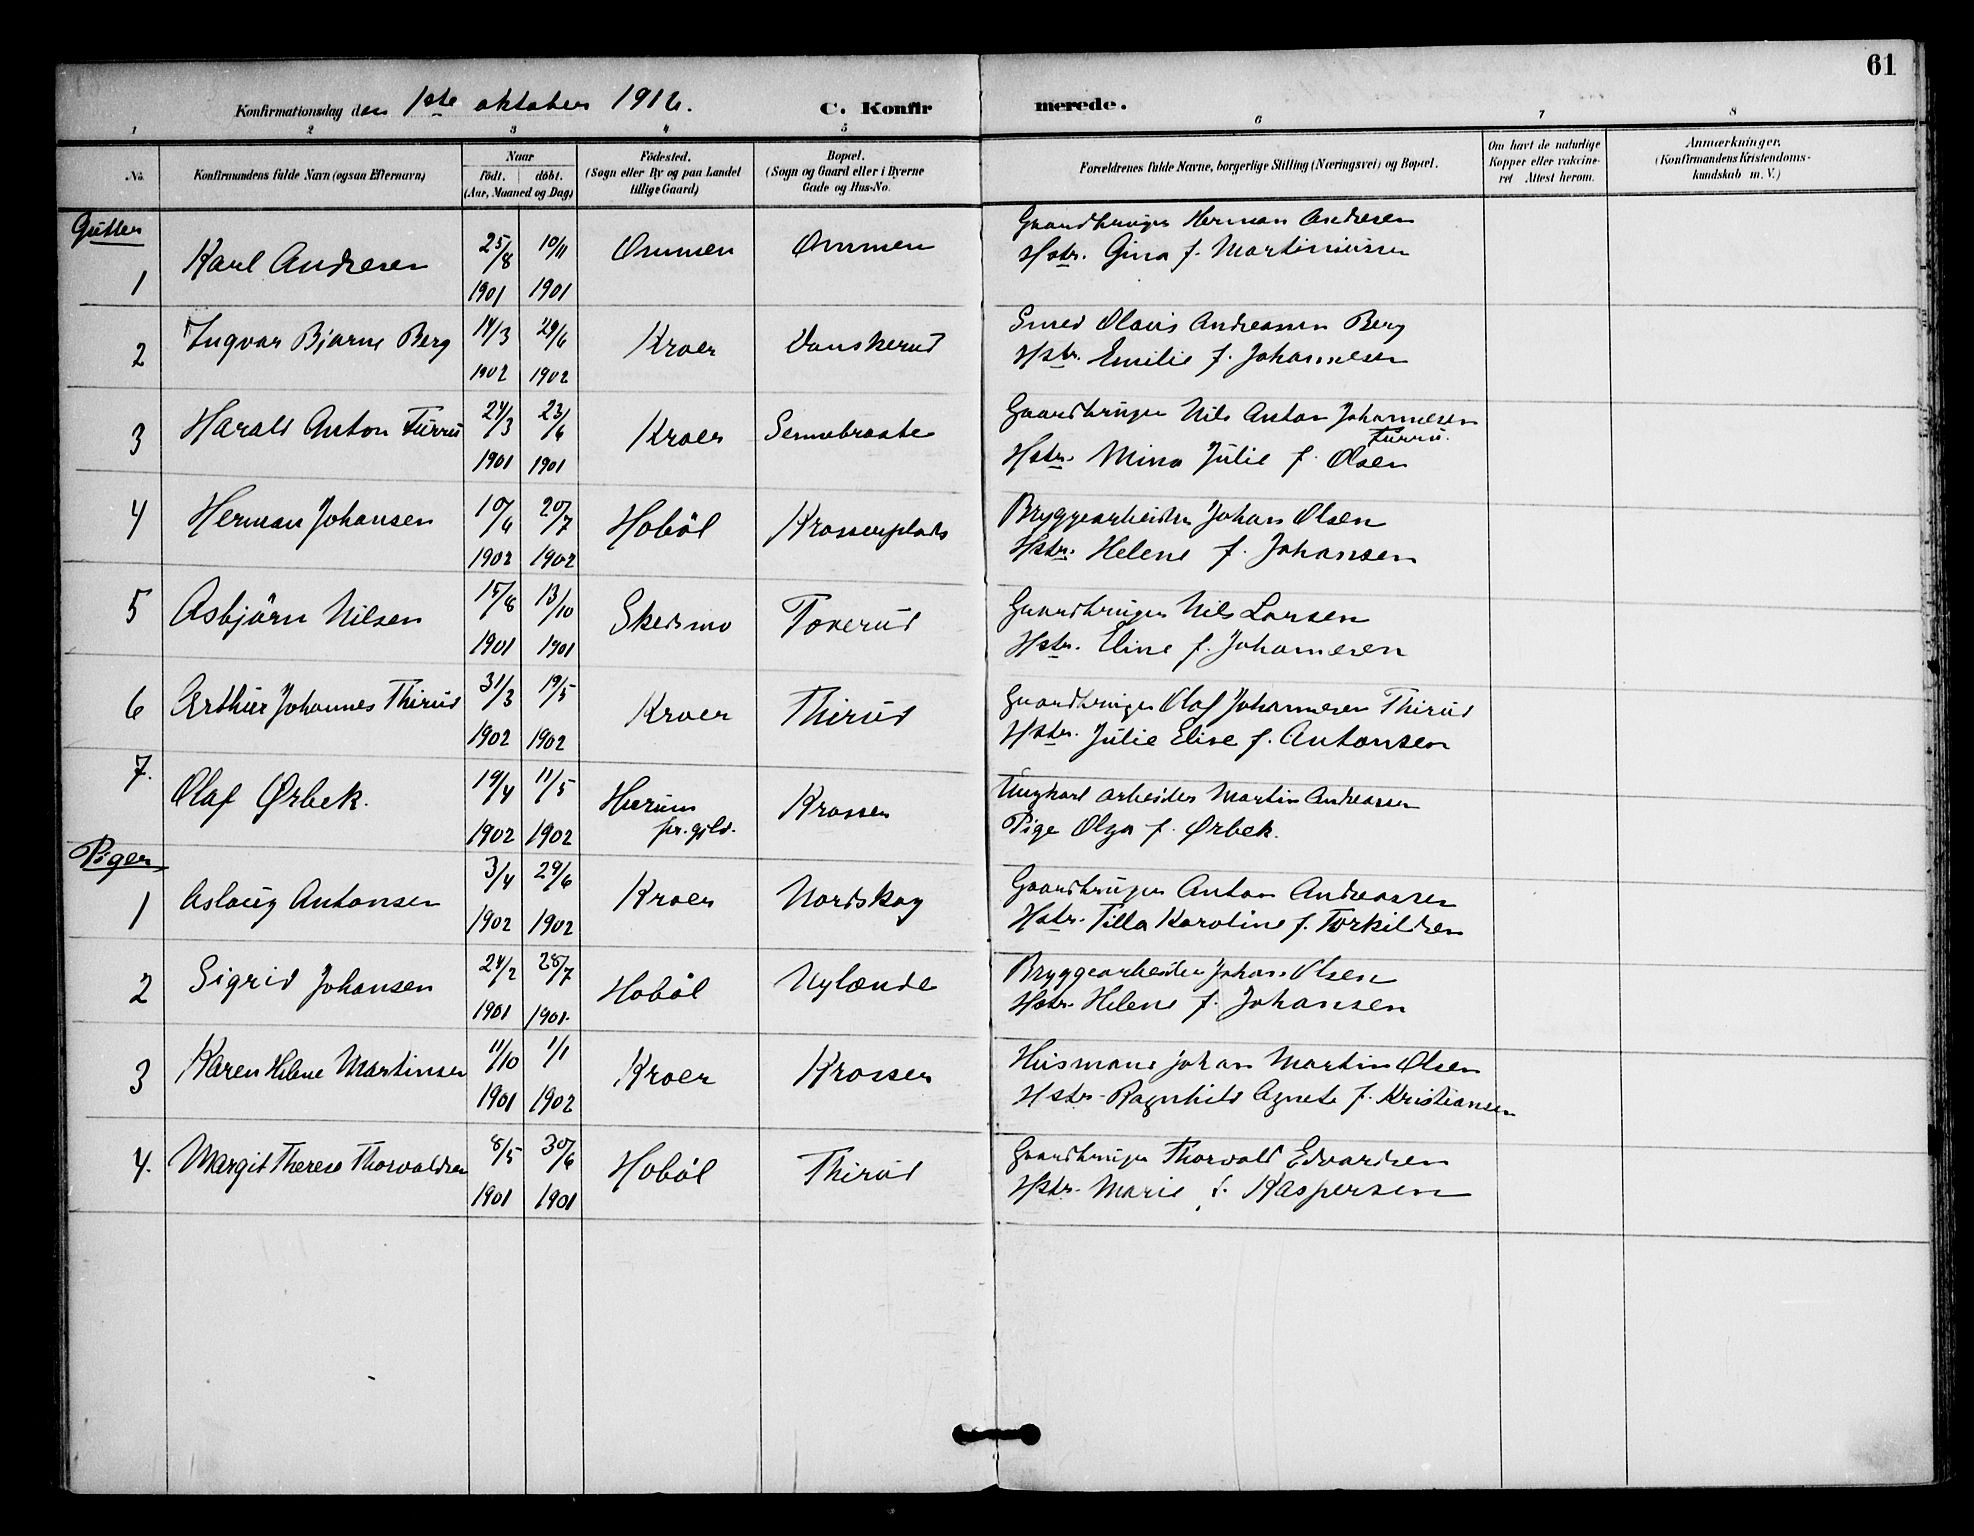 61
Konfirmationsdag den 1ste oktober 1916. C. Konfirmerede.
1 2 3 4 5 6 7 8
No. Konfirmandens fulde Navn (ogsaa Efternavn) Naar födt. döbt. (Aar, Maaned og Dag) Födested. (Sogn eller By og paa Landet tillige Gaard) Bopæl. (Sogn og Gaard eller i Byerne Gade og Hus-No. Forældrenes fulde Navne, borgerlige Stilling (Næringsvei) og Bopæl. Om havt de naturlige Kopper eller vakcineret Attest herom. Anmærkninger. (Konfirmandens Kristendomskundskab m. V.)
Gutter
1 Karl Andresen 25/8 1901 10/11 1901 Ommen Ommen Gaardbruger Herman Andresen
Hstr. Gina f. Martiniussen
2 Ingvar Bjarne Berg 14/3 1902 29/6 1902 Kroer Vanskerud Smed Olavis Andreassen Berg
Hstr. Emilie f. Johannesen
3 Harald Anton Furru 24/3 1901 23/6 1901 Kroer Gaardbruger Nils Anton Johannesen Furru.
Hstr. Mina Julie f. Olsen
4 Herman Johansen 10/6 1902 20/7 1902 Hobøl Krosserplads Bryggearbeider Johan Olsen
Hstr. Helene f. Johansen
5 Asbjörn Nilsen 15/8 1901 13/10 1901 Skedsmo Toverud Gaardbruger Nils Larsen
Hstr. Eline f. Johannesen
6 Arthur Johannes Thirud 31/3 1902 19/5 1902 Kroer Thirud Gaardbruger Olaf Johannesen Thirud
Hstr. Julie Elise f. Antonsen
7. Olaf Ørbek. 19/4 1902 11/5 1902 Hurum pr.gjld. Krosser Ungkarl arbeider Martin Andreassen
Pige Olga f. Ørbek.
Piger
1 Aslaug Antonsen 3/4 1902 29/6 1902 Kroer Nordskog Gaardbruger Anton Andreassen
Hstr. Tilla Karoline f. Torkildsen
2 Sigrid Johansen 24/2 1901 28/7 1901 Hobøl Nylænde Bryggearbeider Johan Olsen
Hstr. Helene f. Johansen
3 Karen Helene Martinsen 11/10 1901 1/1 1902 Kroer Krosser Husmand Johan Martin Olsen
Hstr. Ragnhild Agnete f. Kristiansen
4. Margit Therese Thorvaldsen 8/5 1901 30/6 1901 Hobøl Thirud Gaardbruger Thorvald Edvardsen
Hstr. Marie f. Kaspersen